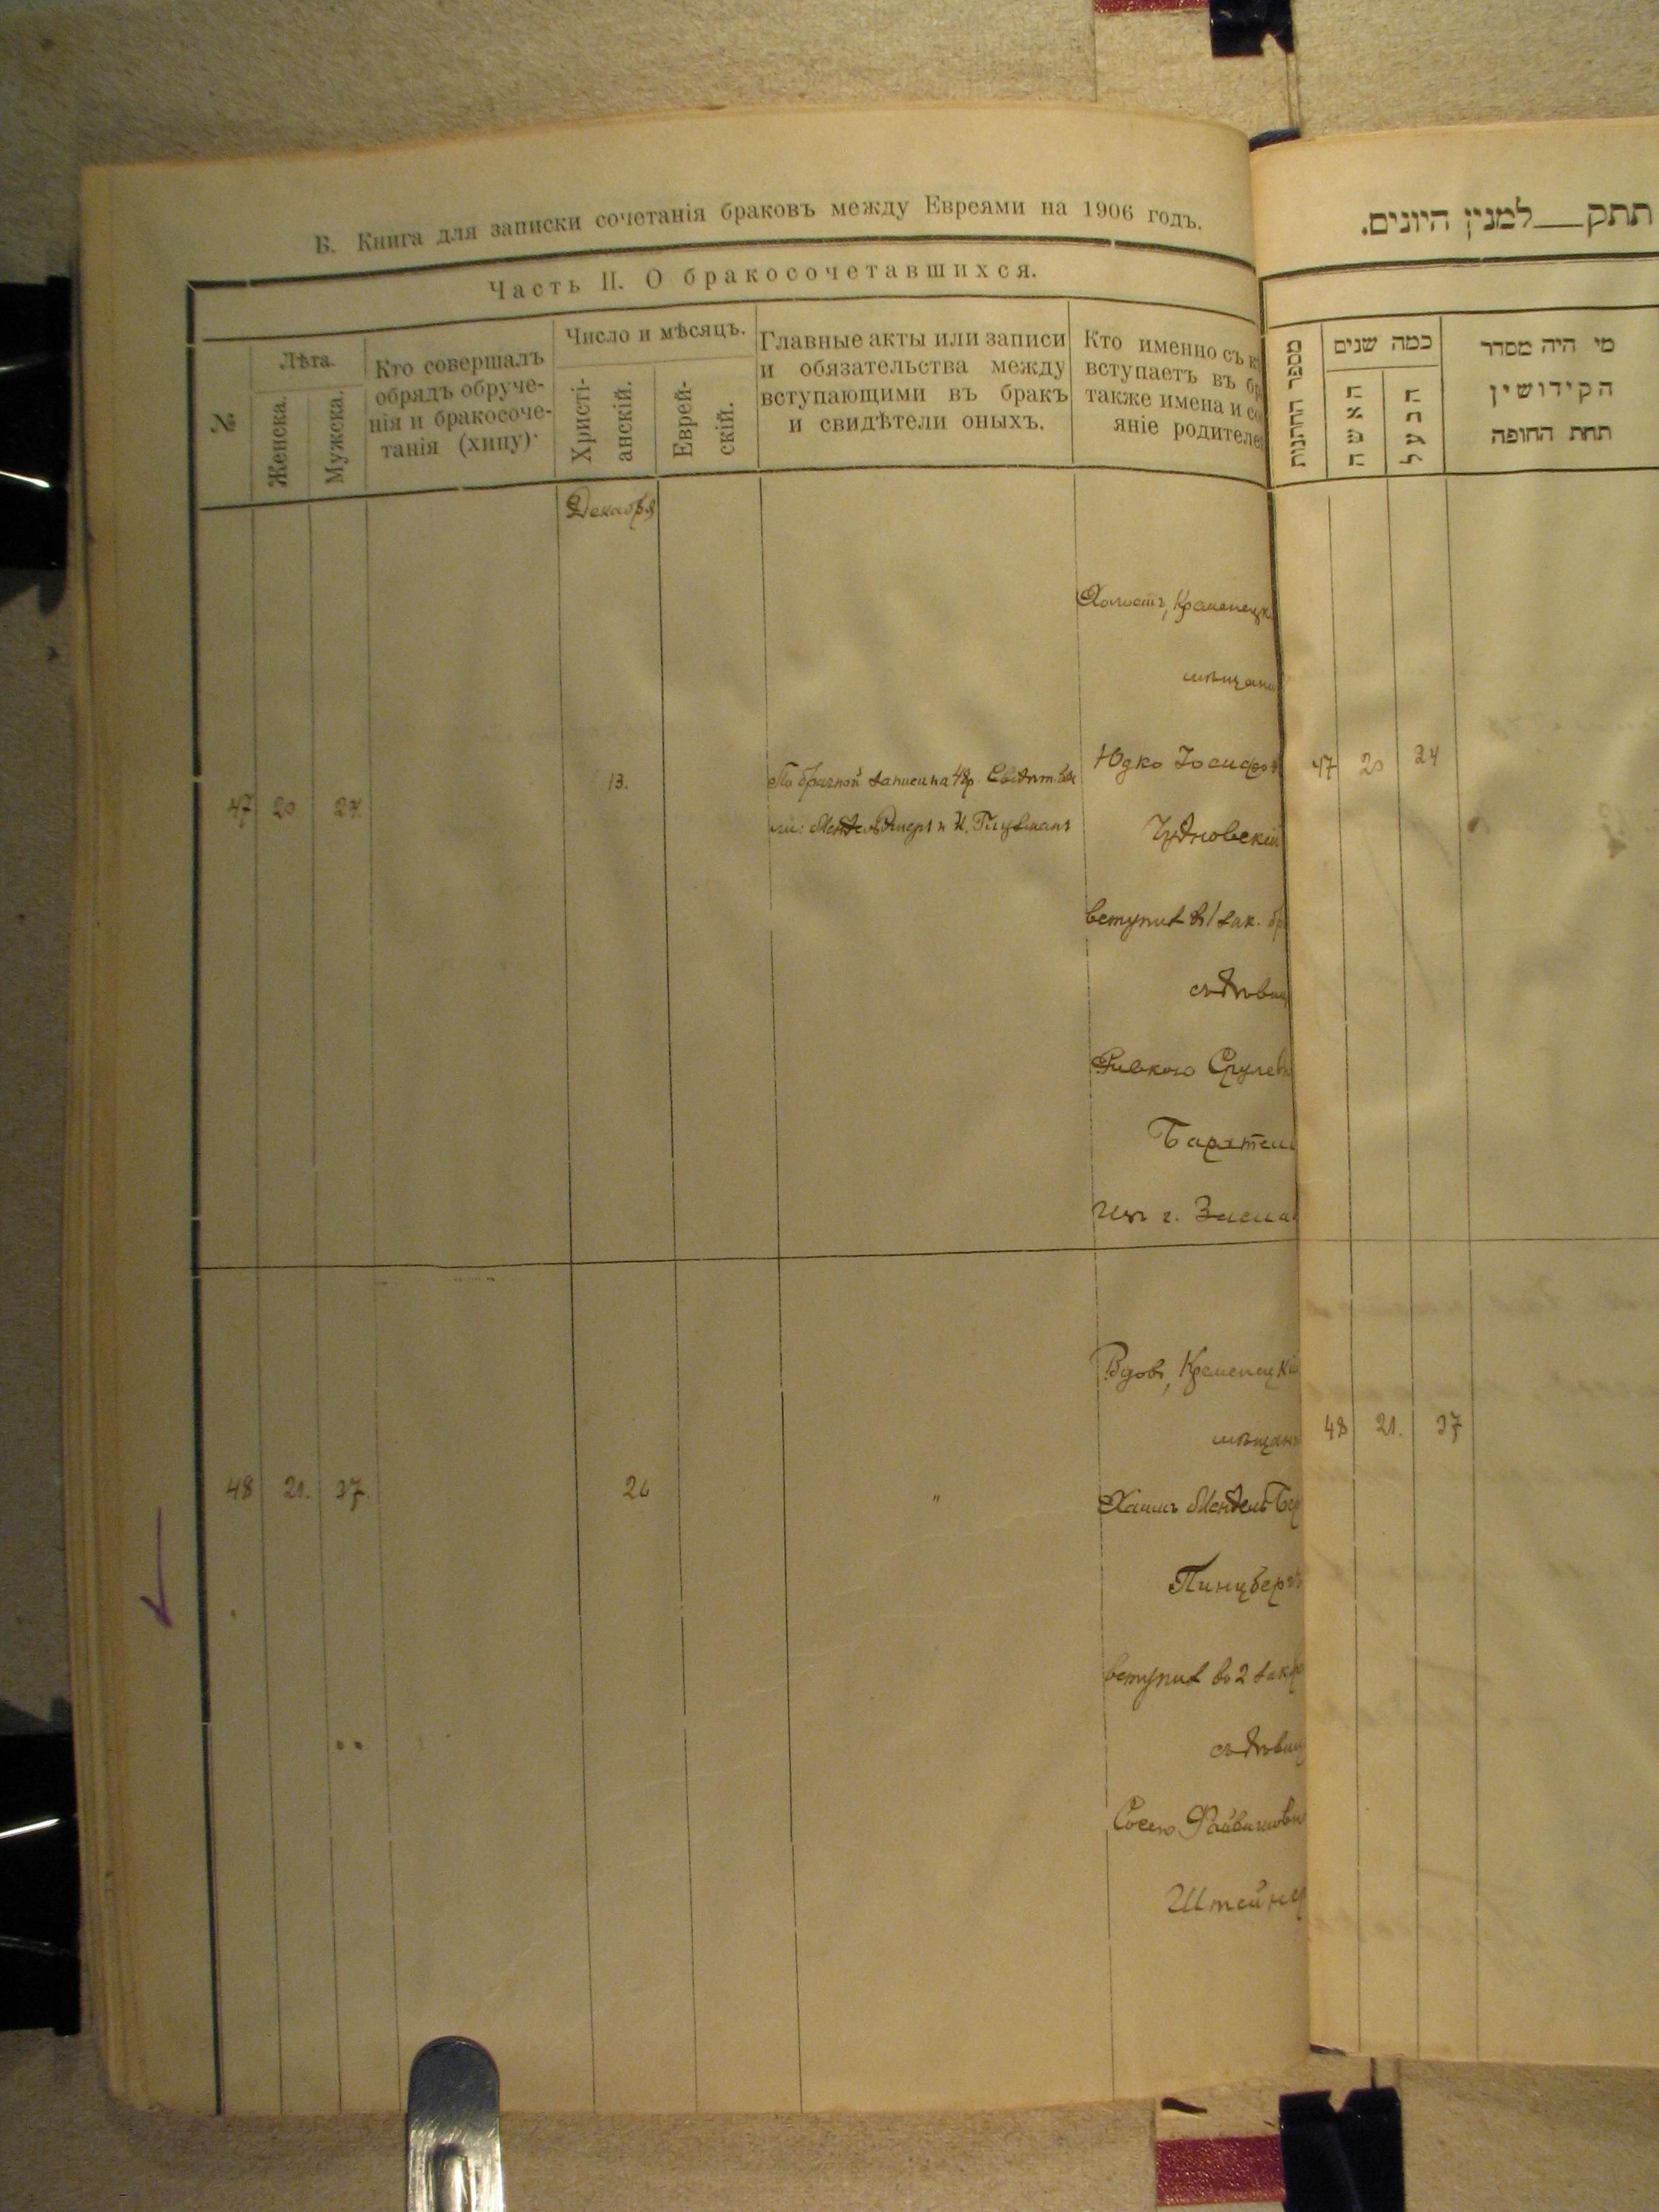 Б. Книга для записки сочетанія браковъ между Евреями на 1906 годъ.
Часть II. О бракосочетавшихся.
№
Лѣта.
Женска.
Мужска.
Кто совершалъ
обрядъ обруче-
нія и бракосоче-
танія (хипу)·
Число и мѣсяцъ.
Христі-
анскій.
Еврей-
скій.
Главные акты или записи
и обязательства между
вступающими въ бракъ
и свидѣтели оныхъ.
Кто именно съ к
вступаетъ въ бр
также имена и со
яніе родителе
Декабря
47 20 24. 13.
По брачной записи на 48р. Свидѣте
ли: Мендель и И.
Холостъ, Кременецк
мѣщани
Юдко Іосифов
Чудновскій
вступил въ 1 зак. бр
съ дѣвиц
Ривкою Срулев
Бархтен
изъ г. Засла
48 21. 37. 26 "
Вдовъ, Кременецкій
мѣщани
Хаимъ Мендель Бер
Пинцбергъ
вступил въ 2 зак бр
съ дѣвиц
Сосею Файвишовн
Штейнер
תתק___למנין היונים.
מספר החתונות
כמה שנים
האשה
הבעל
מי היה מסדר
הקידושין
תחת החופה
47 20 24
48 21. 37